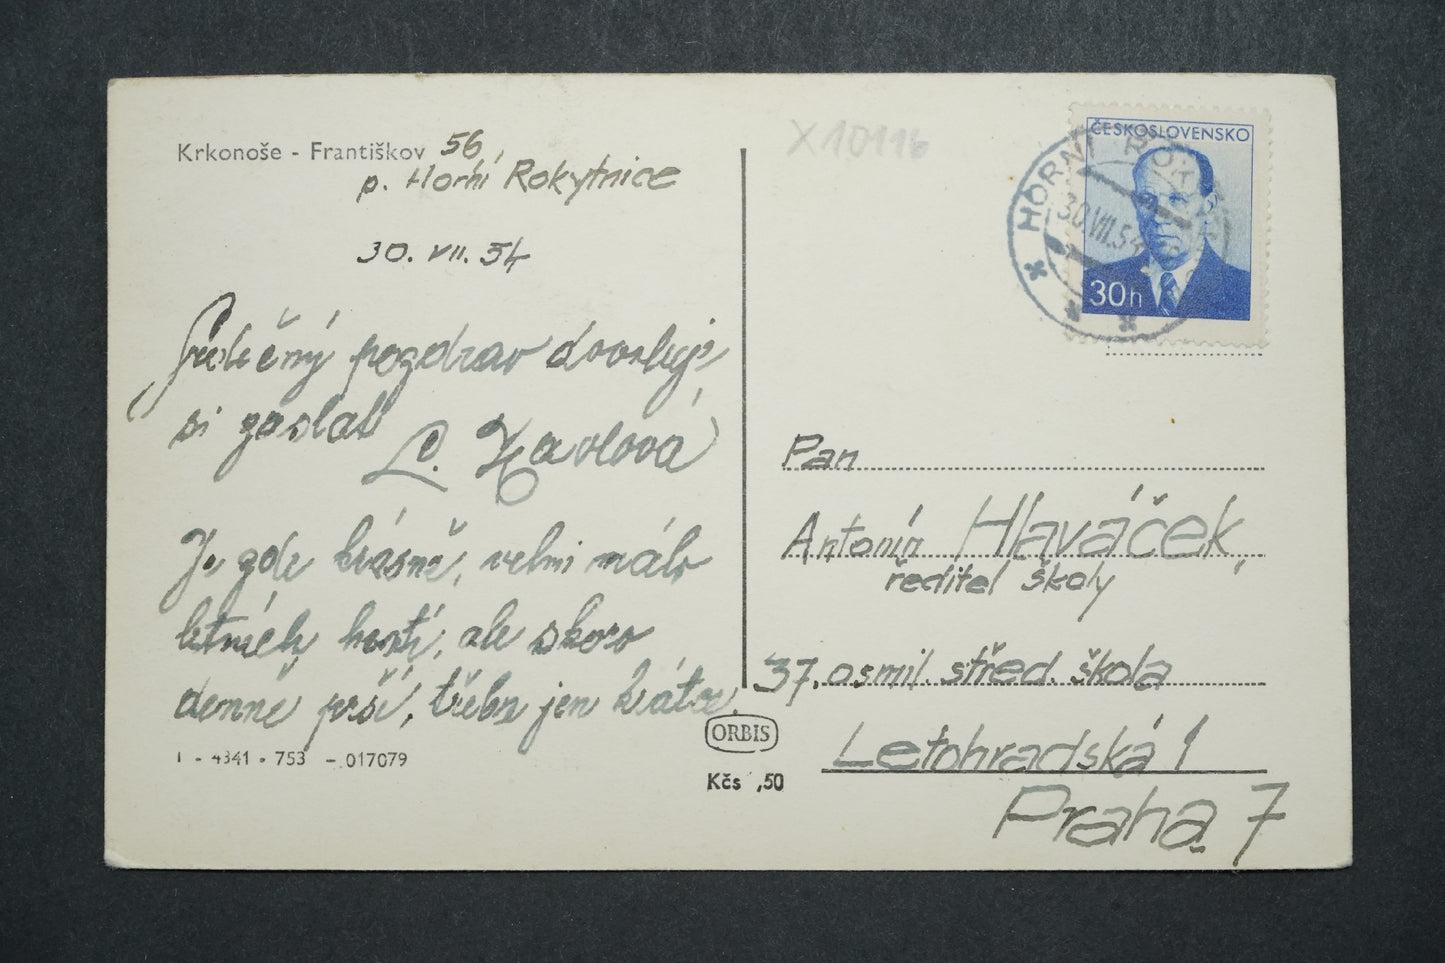 Krkonoše - Františkov 56
p. Horní Rokytnice
30. VII. 54
Srdečný pozdrav dovoluji
si zaslat
L. Kavlová
Je zde krásně, velmi málo
letních hostí, ale skoro
denně prší, třeba jen krátce.
1 - 4341 - 753 - 017079
ORBIS
Kčs ,50
X10116
ČESKOSLOVENSKO
30h
HORNÍ ROKYTNICE
30.VII.54
Pan
Antonín Hlaváček,
ředitel školy
37. osmil. střed. škola
Letohradská 1
Praha 7